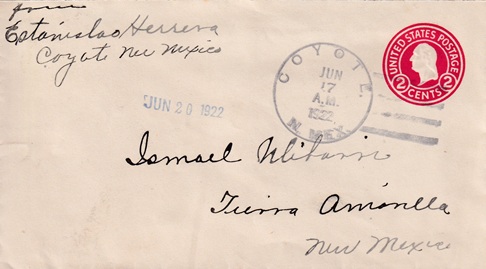 from
Estanislao Herrera
Coyote New Mexico
UNITED STATES POSTAGE
2 CENTS 2
COYOTE.
JUN
17
A.M.
1922
N. MEX.
JUN 20 1922
Ismael Ulibarri
Tierra Amarilla
New Mexico